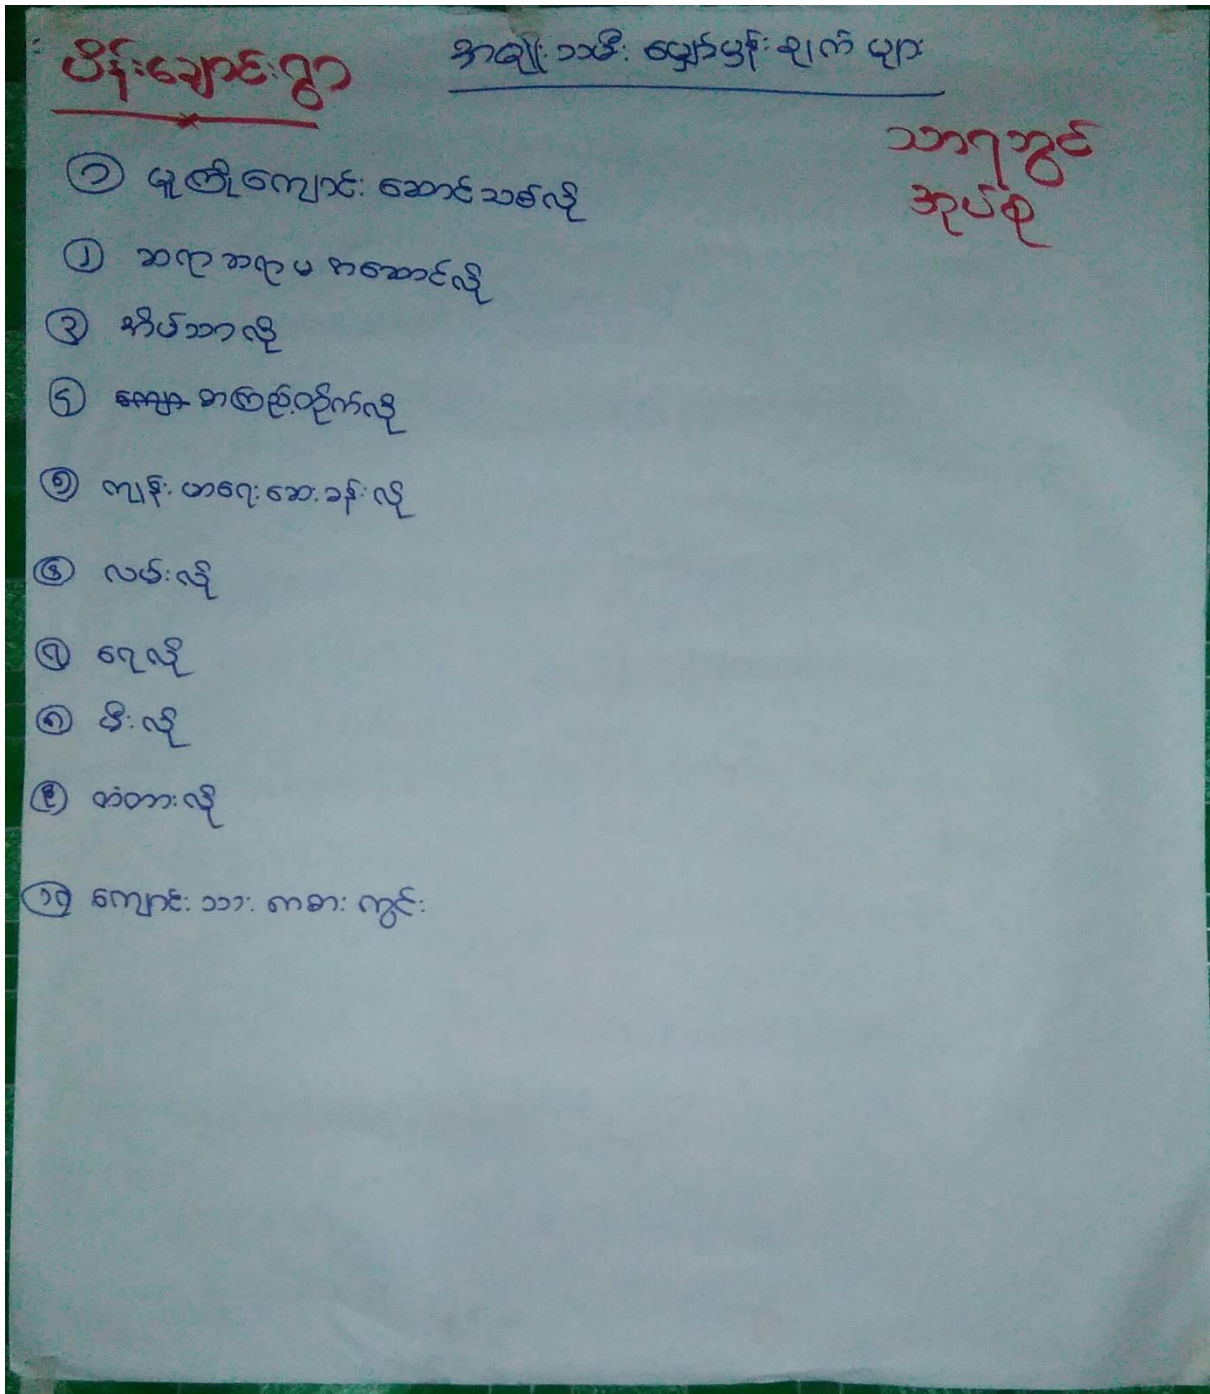 ပိန်းချောင်းရွာ
အမျိုးသမီး မျှော်မှန်းချက် များ
သာရဘွင်
အုပ်စု
၁ မူကြိုကျောင်း ဆောင်သစ်လို
၂ ဆရာ ဆရာမ အဆောင်လို
၃ အိမ်သာလို
၄ စာကြည့်တိုက်လို
၅ ကျန်းမာရေးဆေးခန်းလို
၆ လမ်းလို
၇ ရေလို
၈ မီးလို
၉ တံတားလို
၁၀ ကျောင်းသား ကစား ကွင်း